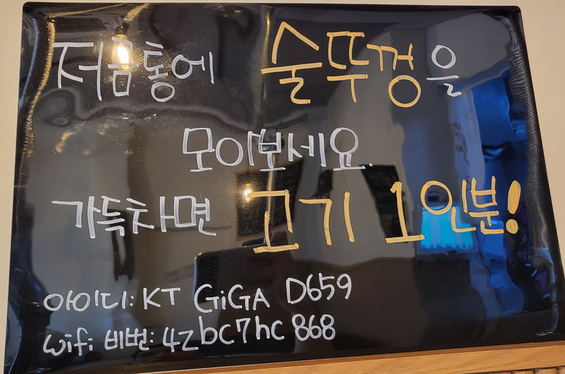 저금통에 술뚜껑을
모이보세요.
가득차면 고기 1인분!
아이디: KT GiGA D659
wifi 비번: 4zbc7hc 868